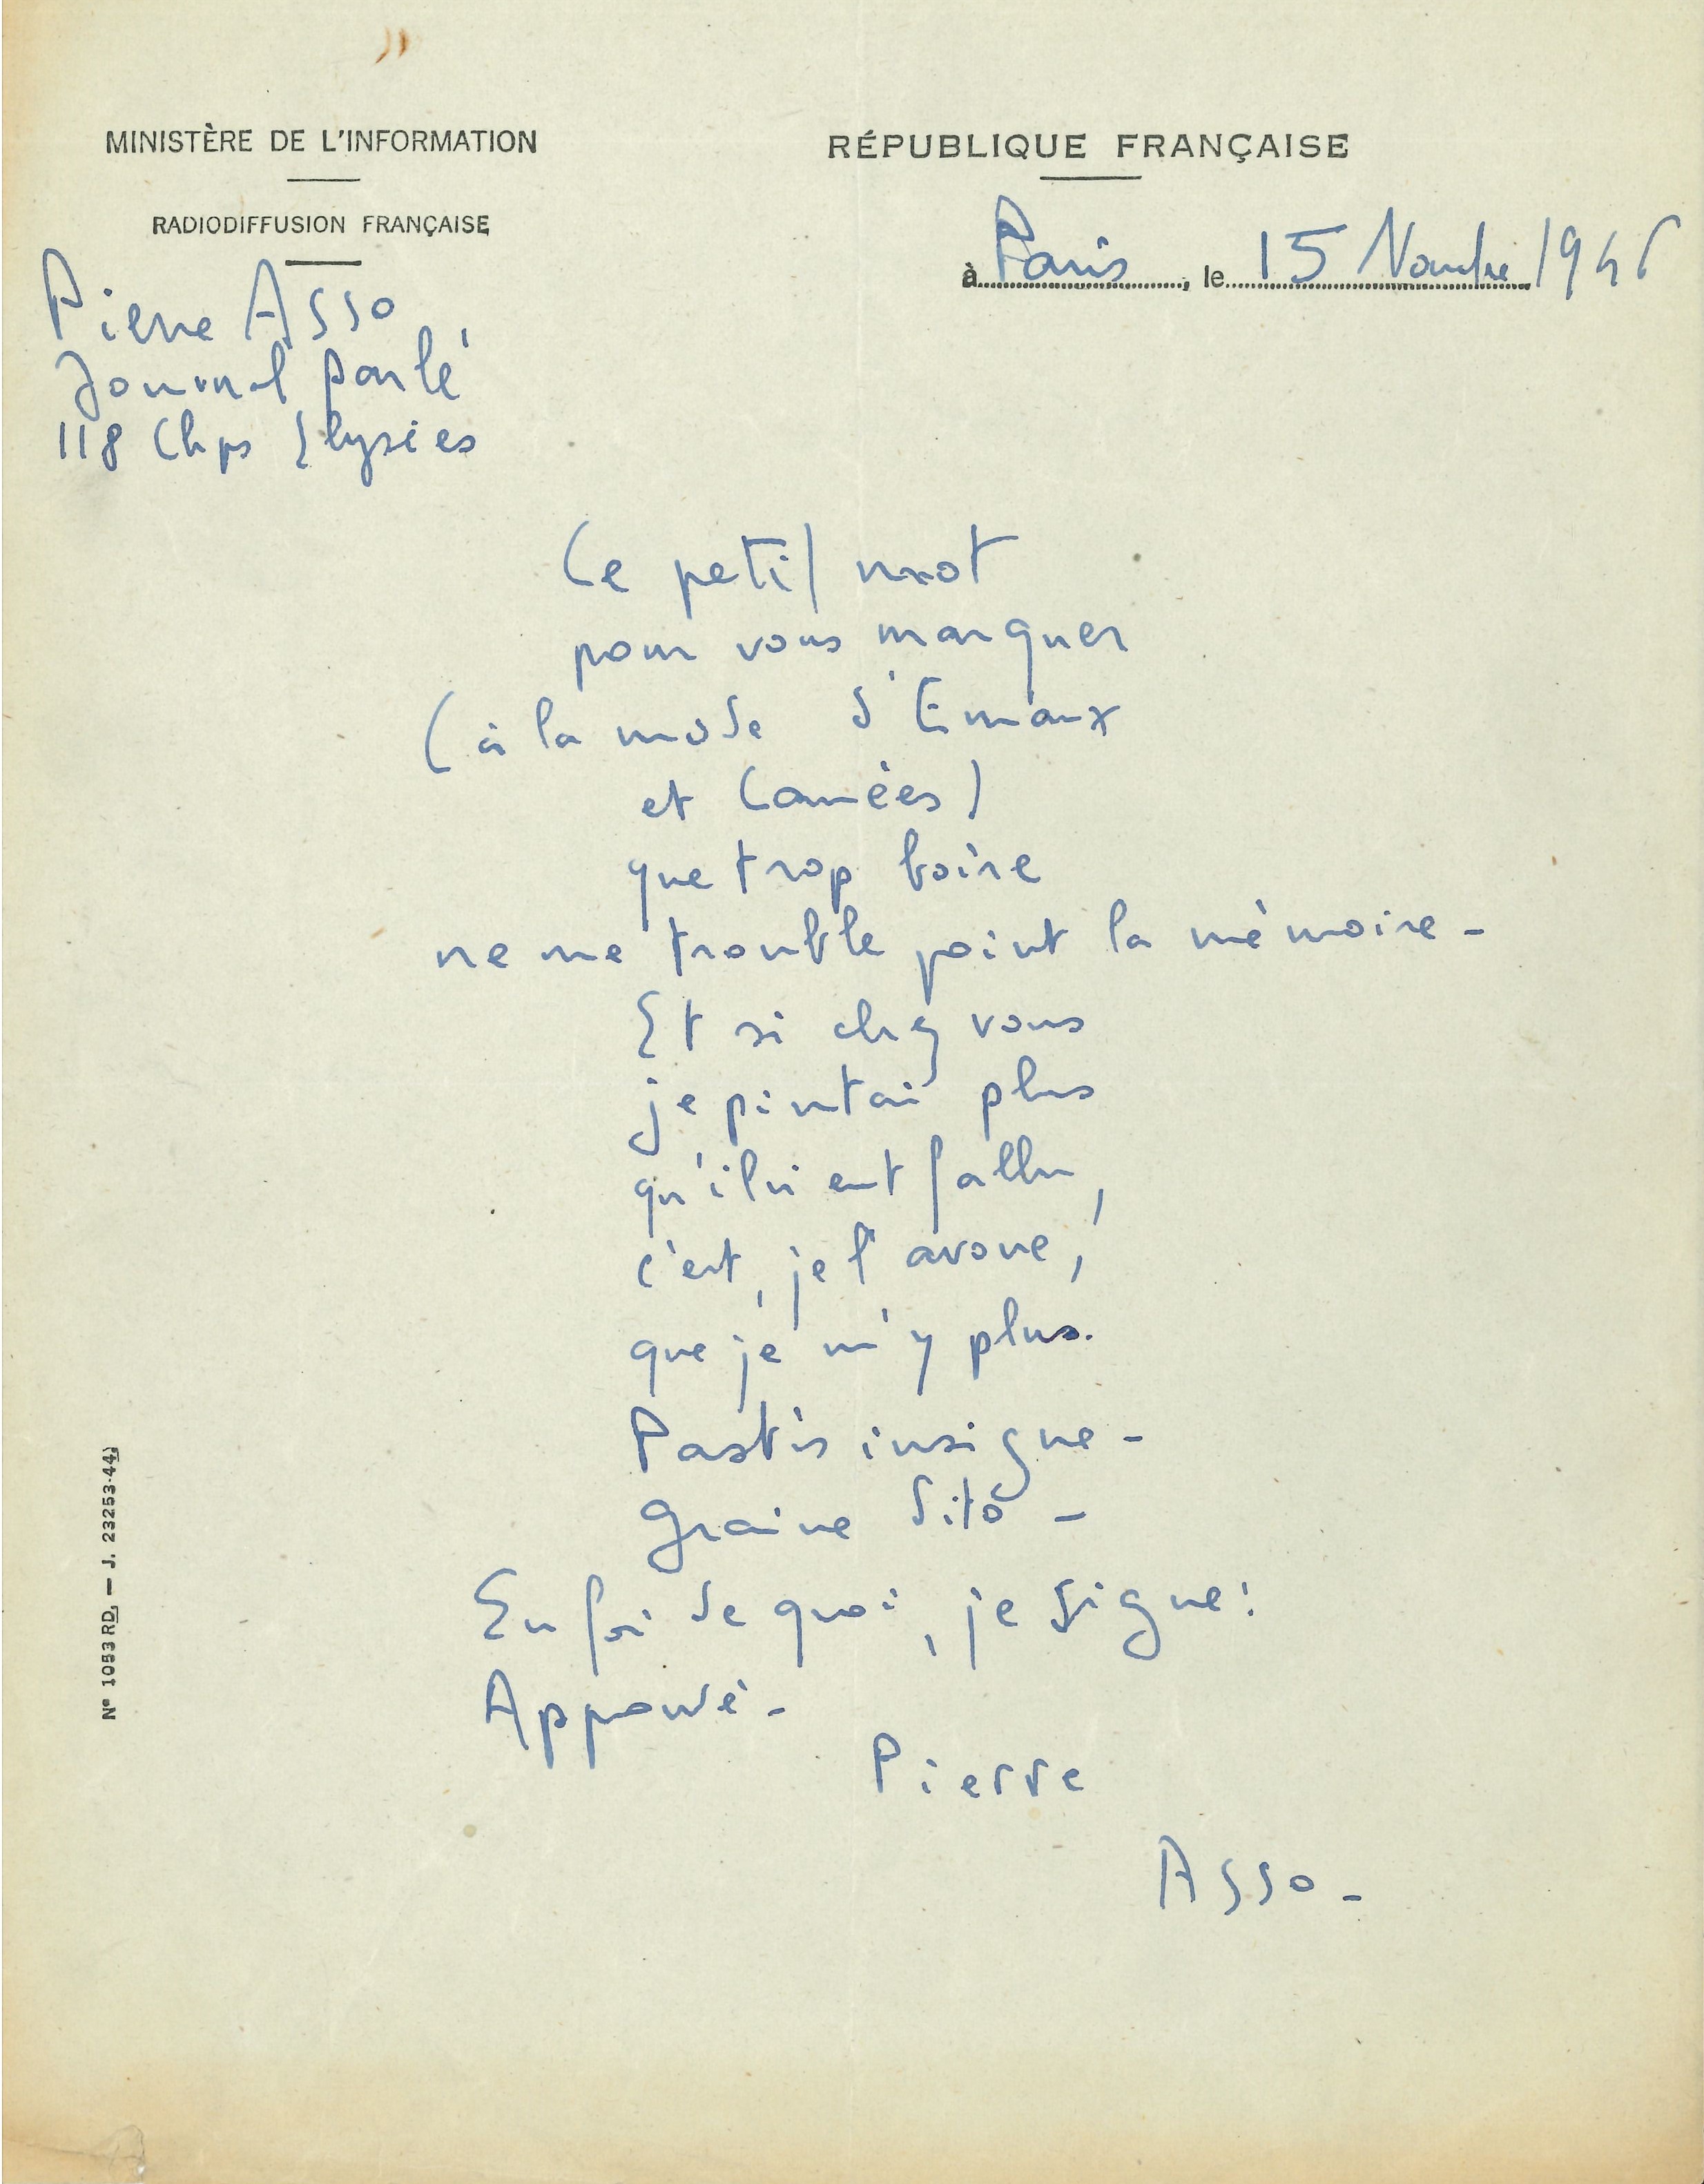 MINISTÈRE DE L'INFORMATION
RADIODIFFUSION FRANÇAISE
RÉPUBLIQUE FRANÇAISE
à Paris, le 15 Novembre 1946
Pierre Asso
Journal parlé
118 Chps Elysées
Ce petit mot
pour vous marquer
(à la mode d'Emaux
et Camées)
que trop boire
ne me trouble point la mémoire -
Et si chez vous
je pintai plus
qu'il n'eut fallu,
c'est, je l'avoue,
que je m'y plus.
Pastis insigne -
Graine dito -
En foi de quoi, je signe :
Approuvé -
Pierre
Asso -
N° 1053 RD. — J. 23253-44)